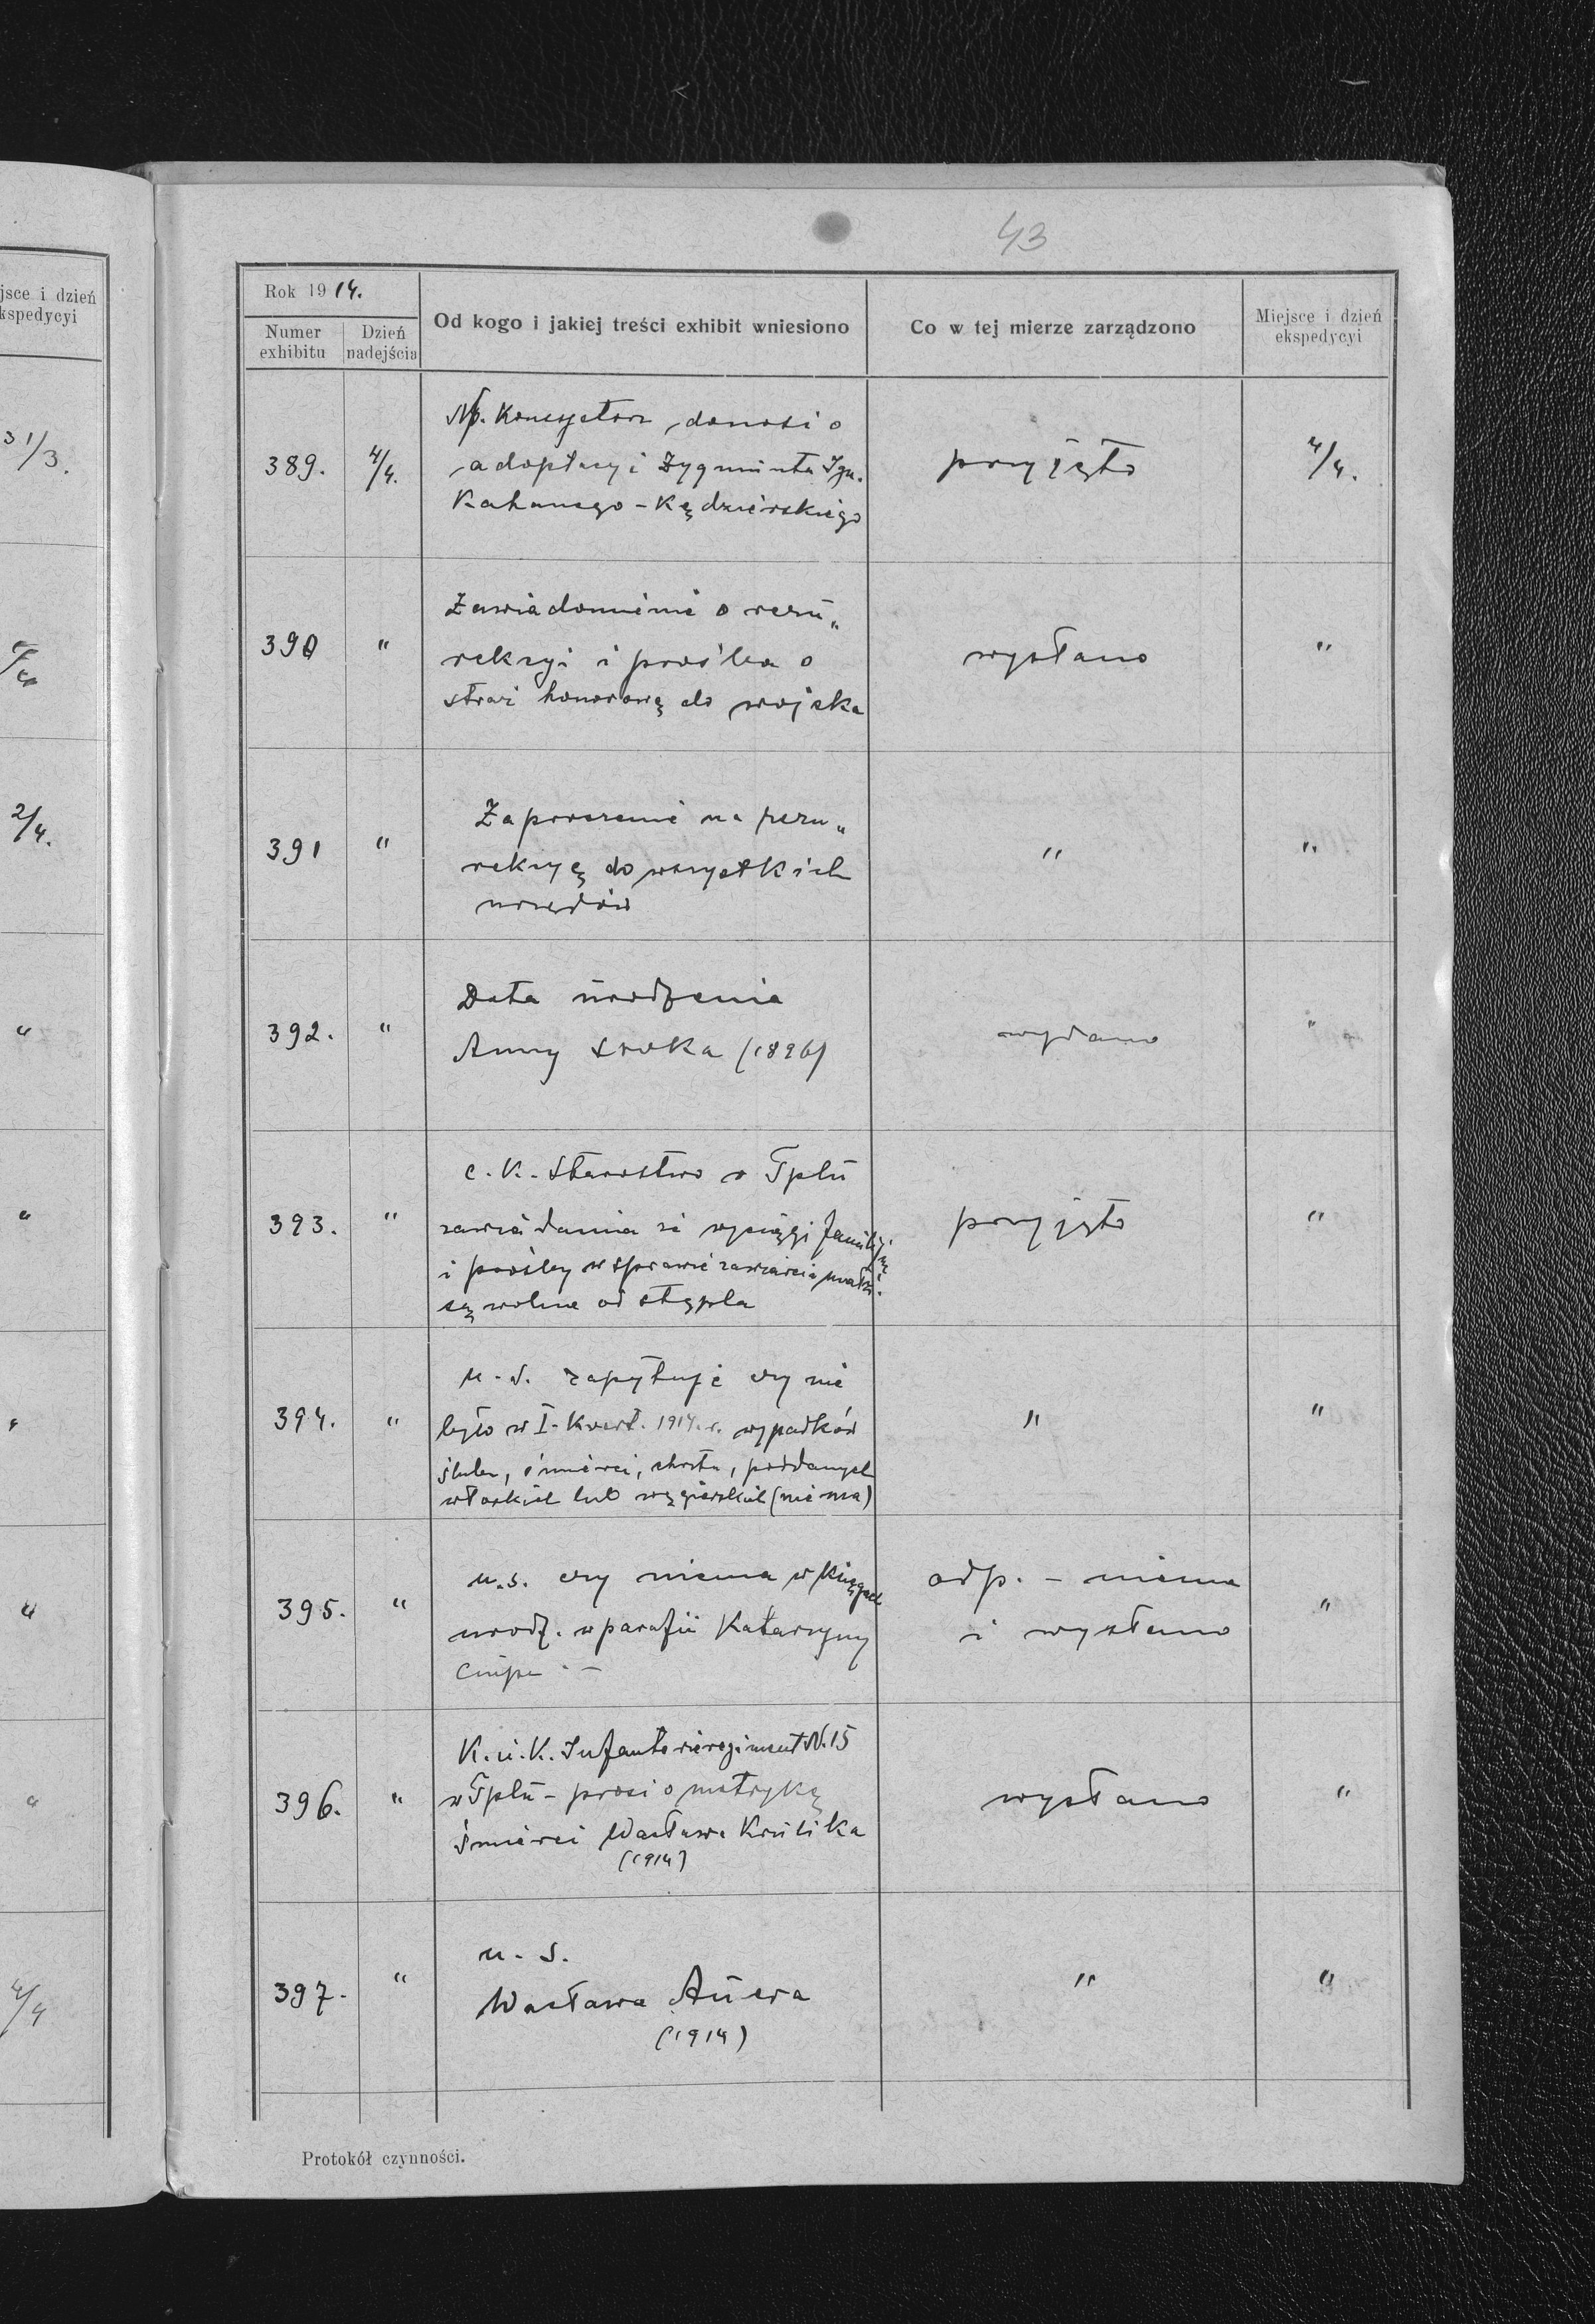 jsce i dzień
kspedycyi
31/3.
2/4.
"
"
"
"
"
4/4
43
Rok 1914.
Numer exhibitu
Dzień nadejścia
Od kogo i jakiej treści exhibit wniesiono
Co w tej mierze zarządzono
Miejsce i dzień ekspedycyi
389. 4/4. Np. Konsystorz donosi o
adoptacyi Zygmunta Ign.
Kahanego - Kędzierskiego
przyjęto 4/4.
390 " Zawiadomienie o rezu„
rekcyi i prośba o
straż honorową do wojska
wysłano "
391 " Zaproszenie na rezu„
rekcyę do wszystkich
urzędów
" "
392. " Data urodzenia
Anny Sroka (1896)
wydano "
393. " c. k. Starostwo w Tplu
zawiadamia że wyciągi familijne
i prośby w sprawie zawarcia małż.
są wolne od stępla
przyjęto "
394. " u. s. zapytuje czy nie
było w I. Kwart. 1914. r. wypadków
ślubu, śmierci, chrztu, poddanych
włoskich lub węgierskich (nie ma)
" "
395. " u. s. czy niema w księgach
urodz. w parafii Katarzyny
odp. - niema
i wysłano "
396. " K. u. K. Infanterieregiment N. 15
w Tplu - prosi o metrykę
śmierci Wacława Krulika
(1914)
wysłano "
397. " u. s.
Wacława Auera
(1914)
" "
Protokół czynności.